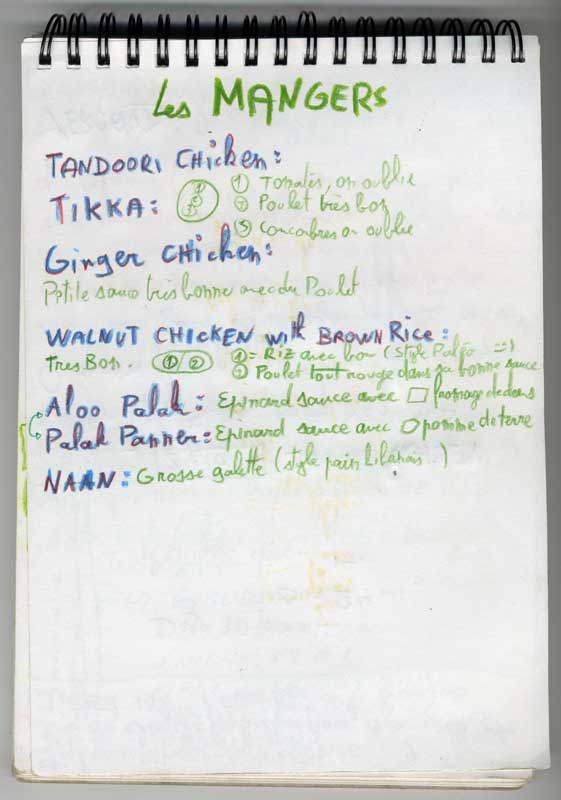 Les MANGERS
TANDOORI CHicken:
TIKKA: ① Tomates, on oublie
② Poulet très bon
③ Concombres on oublie
Ginger CHicken:
Petite sauce très bonne avec du Poulet
WALNUT CHICKEN with BROWN Rice:
Tres Bon. ①/② ① = Riz avec bon (Style Paléo =)
② Poulet tout rouge dans sa bonne sauce
Aloo Palak: Epinard sauce avec fromage dedans
Palak Panner: Epinard sauce avec pomme de terre
NAAN: Grosse galette (style pain Libanais...)